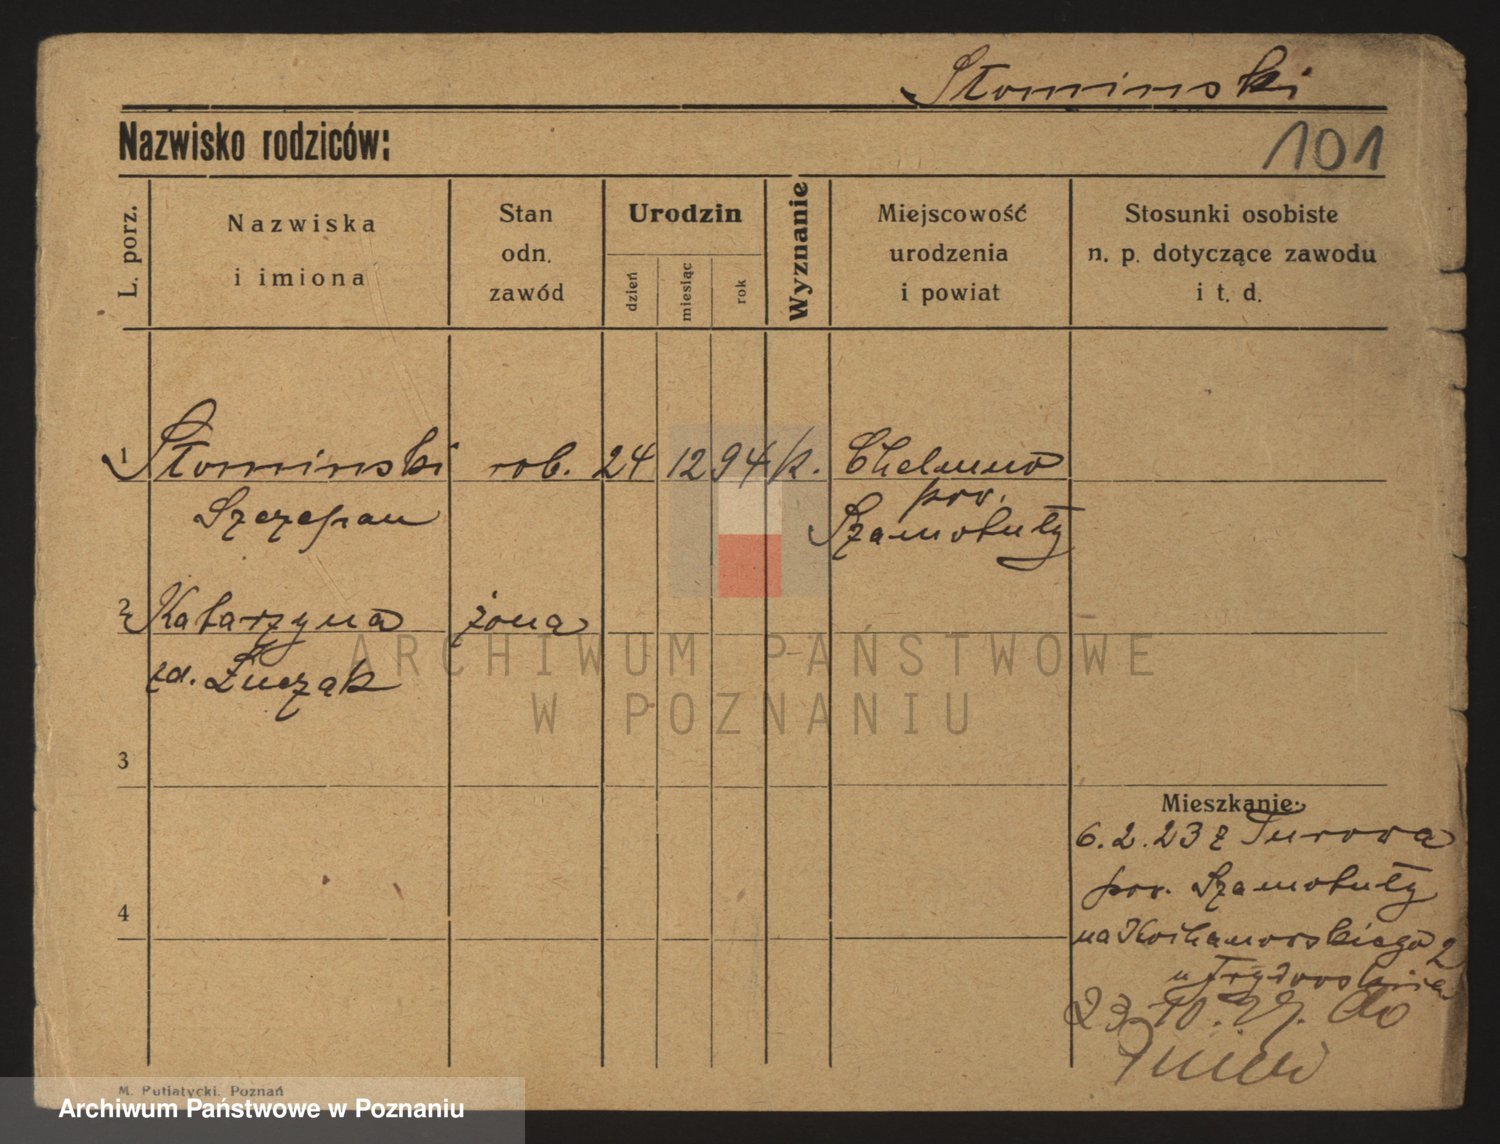 Słominski
Nazwisko rodziców:
101
L. porz.
Nazwiska
i imiona
Stan
odn.
zawód
Urodzin
dzień
miesiąc
rok
Wyznanie
Miejscowość
urodzenia
i powiat
Stosunki osobiste
n. p. dotyczące zawodu
i t. d.
1 Słominski rob. 24 12 94 k. Chelmno
Szczepan
pow.
Szamotuły
2 Katarzyna żona
zd. Łuczak
3
4
Mieszkanie:
6.2.23 z Turowa
pow. Szamotuły
na Kochanowskiego 2
u
23 10. 27. do
ARCHIWUM PAŃSTWOWE
W POZNANIU
M. Putiatycki, Poznań
Archiwum Państwowe w Poznaniu